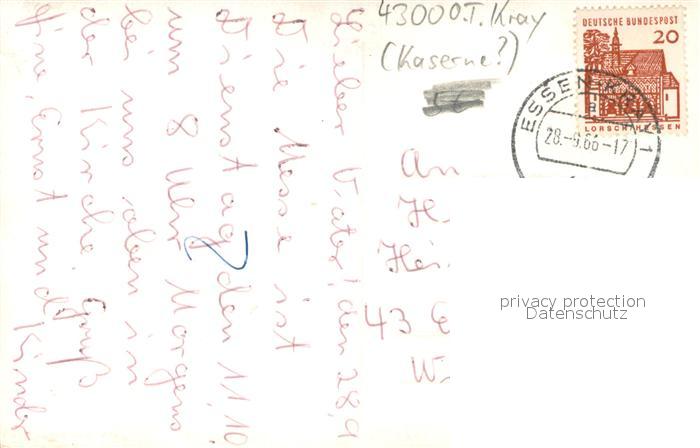 43000 O.T. Kray
(Kaserne?)
DEUTSCHE BUNDESPOST
20
LORSCH/HESSEN
ESSEN-KRAY 1
a
28.-9.66-17
Lieber Vater! den 28,9
Die Messe ist
Dienstag den 11,10
um 8 Uhr Morgens
bei uns oben in
der Kirche Gruß
Ernst und Kinder
An
H.
Hei.
43 E
W.
privacy protection
Datenschutz